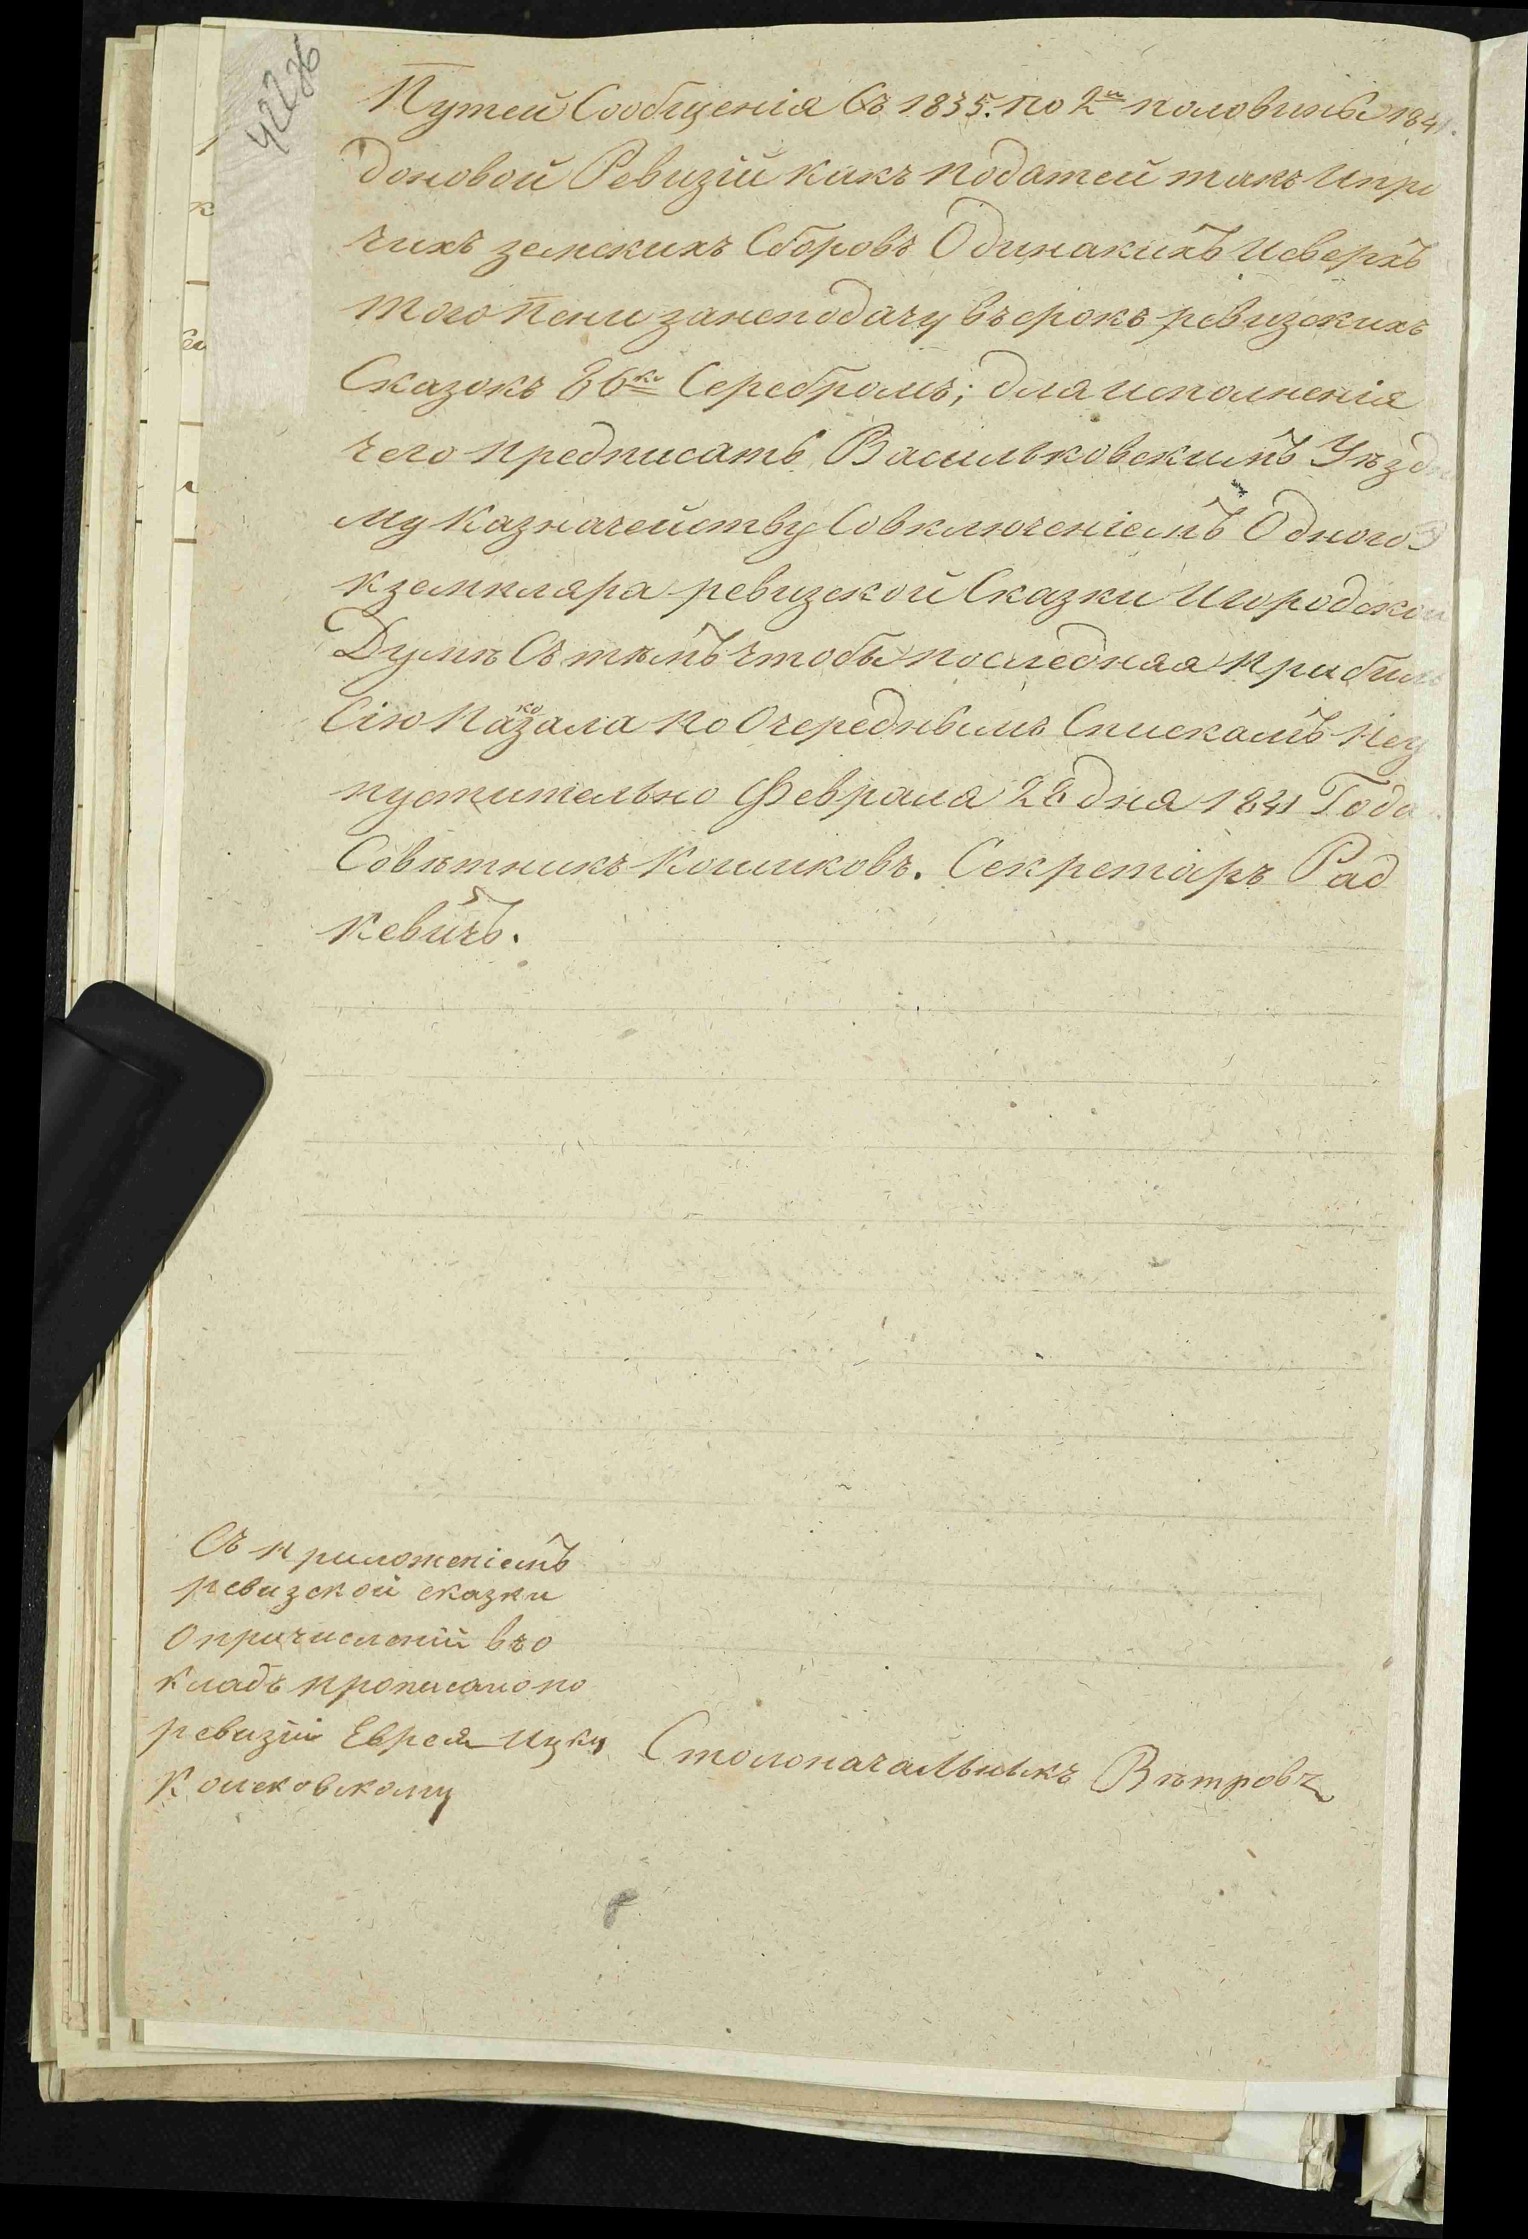 422об
Путей Сообщенія Съ 1835. по 2й половины 1841.
доновой Ревизіи какъ податей такъ Ипро
чихъ земскихъ Сборовъ Одинакихъ Исверхъ
того пени занеподачу въсрокъ ревизскихъ
Сказокъ 86 ко Серебромъ; для исполненія
чего предписать Васильковскимъ Уѣздн
му Казначейству Совключеніемъ Одного Э
кземпляра ревизской Сказки Игородской
Думѣ Съ тѣмъ чтобы последняя
Сію Показала по Очереднымъ Спискамъ Неу
пустительно Февраля 28 дня 1841 Года
Совѣтникъ Кошиковъ. Секретарь Рад
кевичъ.
Съ приложеніемъ
ревизской сказки
Опричисленіи въо
кладъ прописаного
ревизіи Еврея Ицку
Столоначальникъ Вѣтровъ